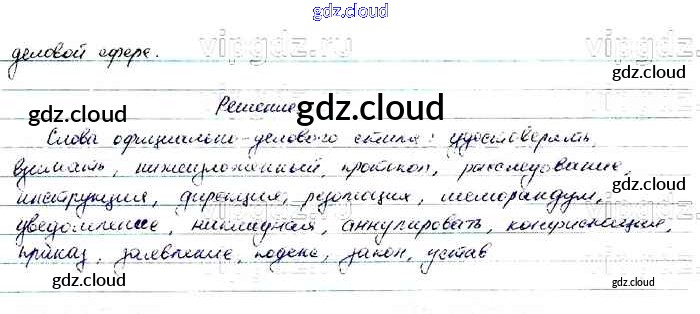 gdz.cloud
деловой сфере.
vipgdz.cloud
vipgdz.cloud
gdz.cloud
gdz.cloud
Решение
gdz.cloud
gdz.cloud
Слова официально-делового стиля: удостоверять,
взимать, нижеизложенный, протокол, расследование,
инструкция, дирекция, резолюция, меморандум,
gdz.cloud
уведомление, аннулировать, конфискация,
gdz.cloud
приказ, заявление, кодекс, закон, устав
gdz.cloud
gdz.cloud
gdz.cloud